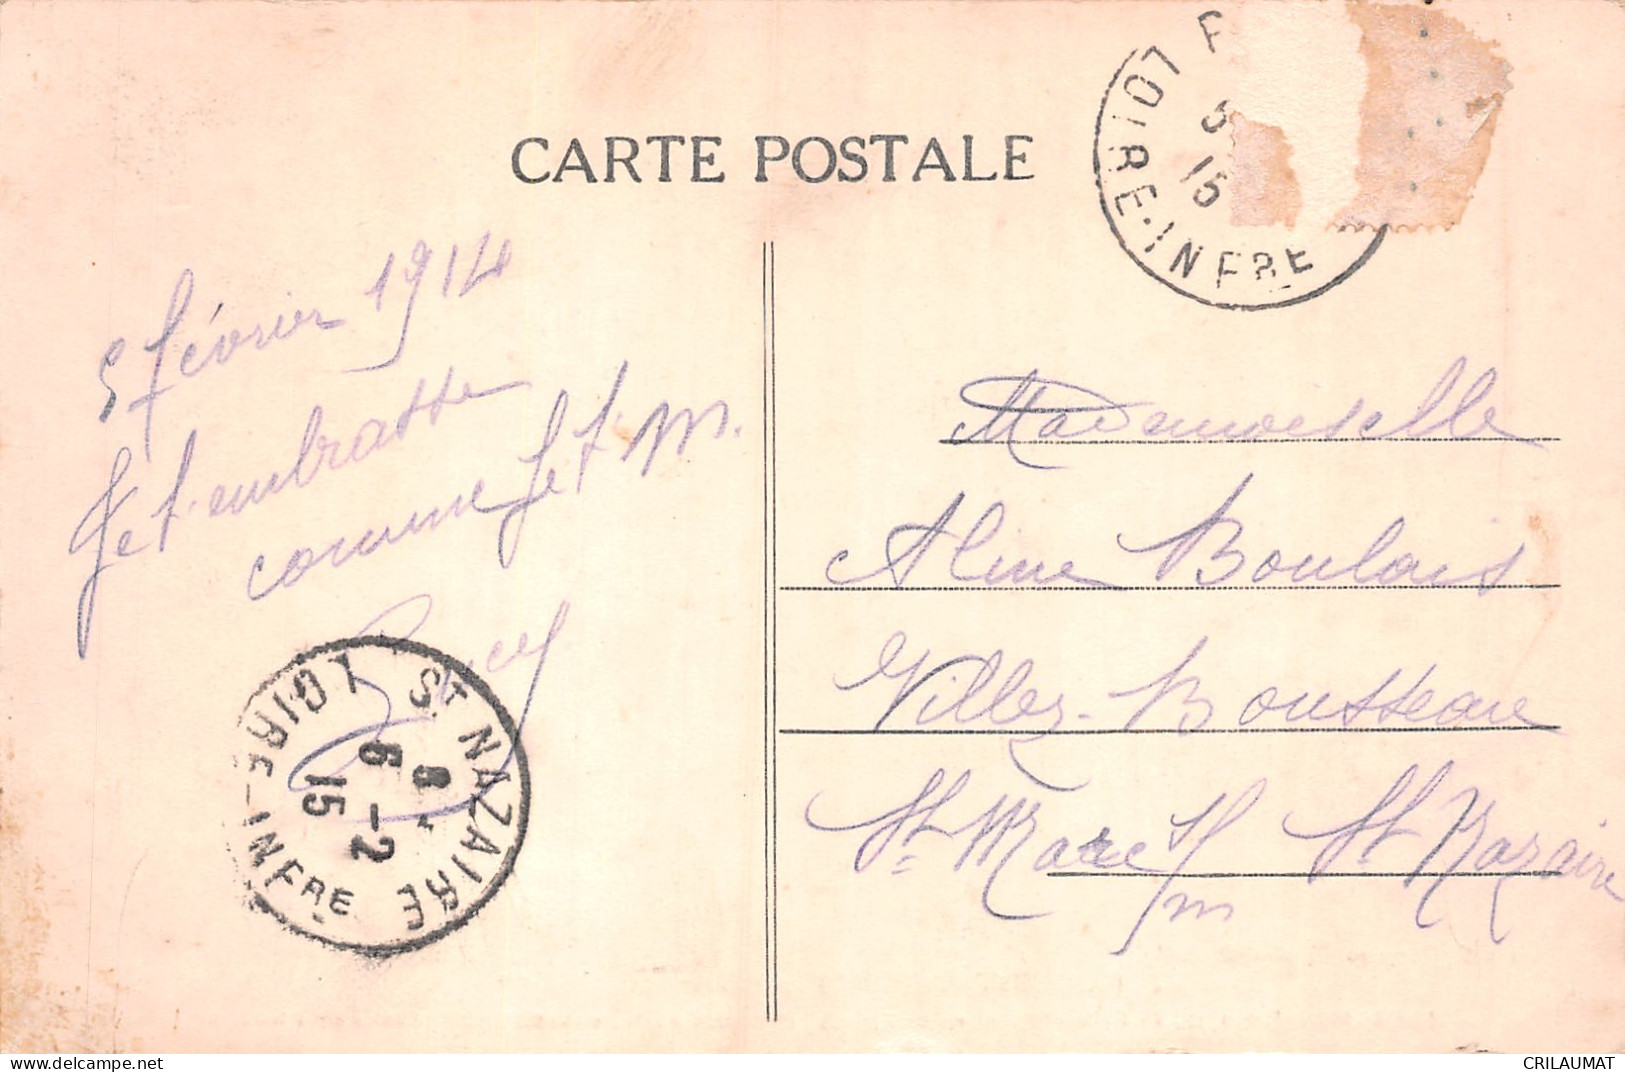 CARTE POSTALE
LOIRE-INFRE
15
5 février 1914
Je t'embrasse
comme je t'm.
Mademoiselle
Aline Boulais
Villez-Bousseau
St Marc s/m St Nazaire
ST NAZAIRE
8
6 -2
15
LOIRE-INFRE
CRILAUMAT